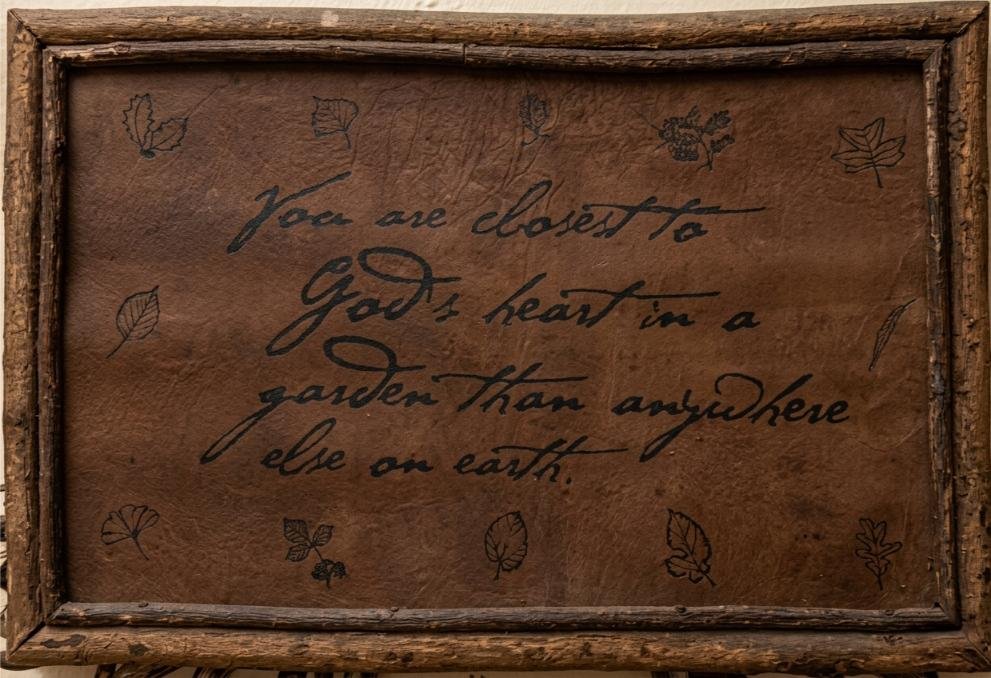 You are closest to
God's heart in a
garden than anywhere
else on earth.